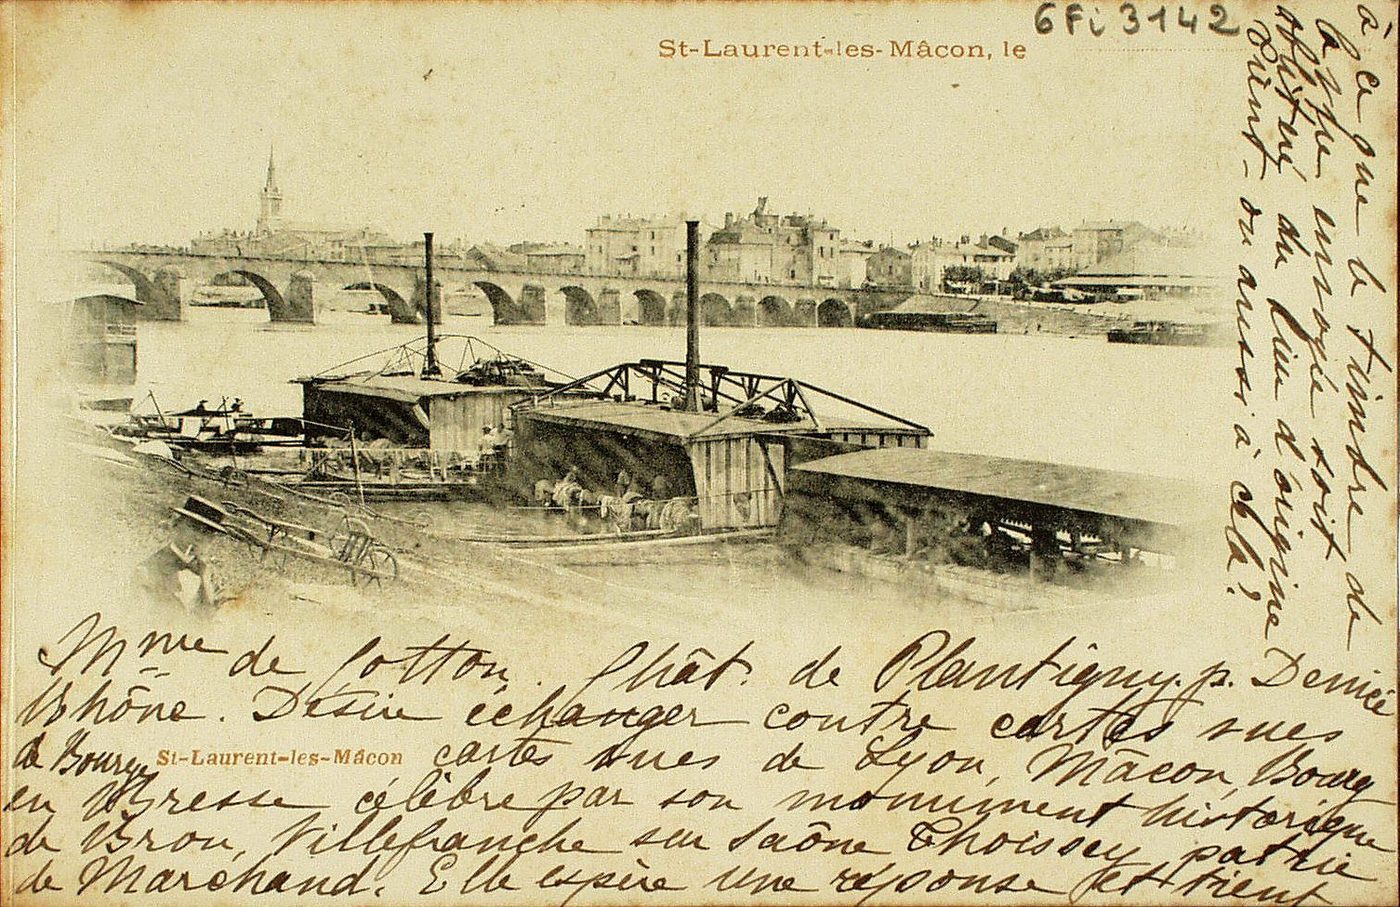 6Fi 3142
St-Laurent-les-Mâcon, le
Mme de Cotton. Chât. de Plantigny. p. Denicé
Rhône. Désire échanger contre cartes vues
de Bourg St-Laurent-les-Mâcon cartes vues de Lyon, Mâcon, Bourg
en Bresse célèbre par son monument historique
de Brou, Villefranche sur Saône, Thoissey, patrie
de Marchand. Elle espère une réponse et tient
à ce que le timbre de
la que envoyée soit
oblitéré du lieu d'origine
Tient-on aussi à cela?